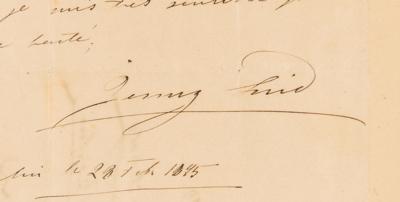 je suis très sensible
santé,
Jenny Lind
le 28 Feb 1845